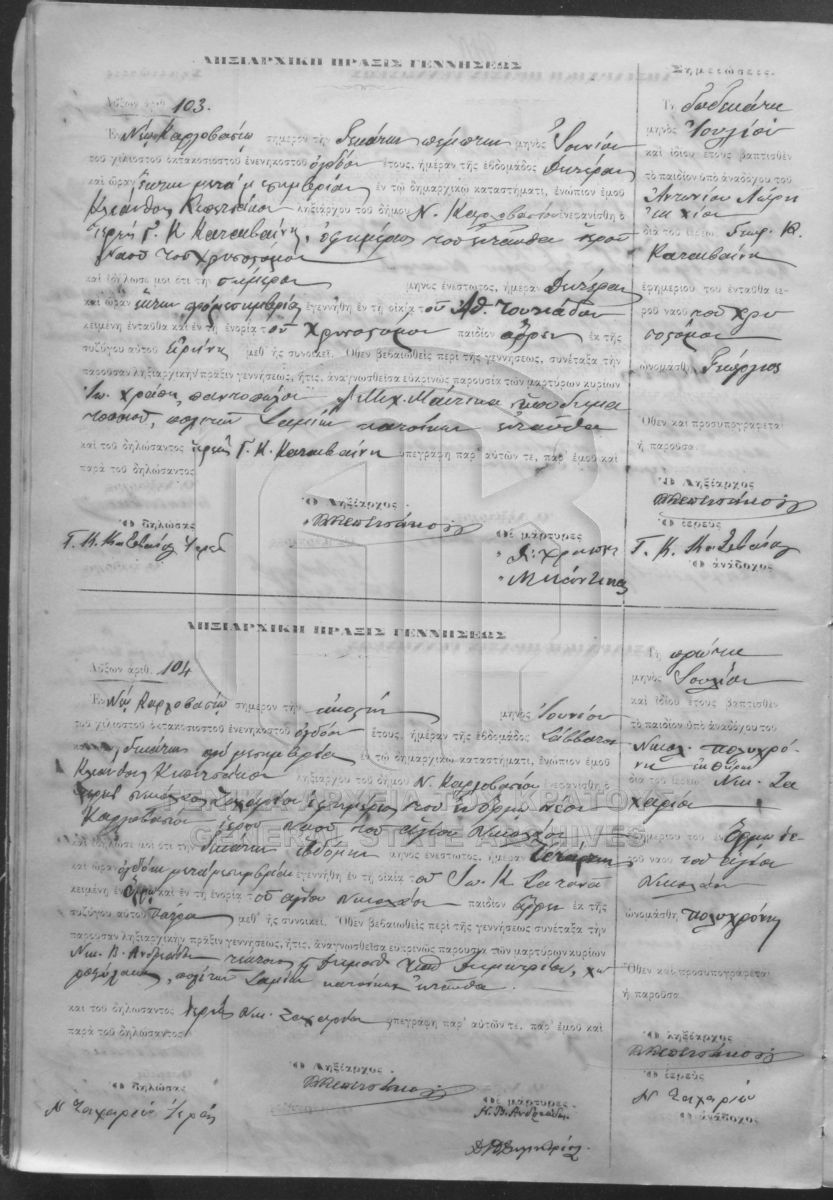 ΛΗΞΙΑΡΧΙΚΗ ΠΡΑΞΙΣ ΓΕΝΝΗΣΕΩΣ
Αὔξων ἀριθ. 103.
Ἐν Νέῳ Καρλοβασίῳ σήμερον τὴν δεκάτην πέμπτην μηνὸς Ἰουνίου
τοῦ χιλιοστοῦ ὀκτακοσιοστοῦ ἐνενηκοστοῦ ὀγδόου ἔτους, ἡμέραν τῆς ἑβδομάδος Δευτέραν
καὶ ὥραν ἕκτην μετὰ μεσημβρίαν ἐν τῷ δημαρχικῷ καταστήματι, ἐνώπιον ἐμοῦ
Κλεάνθους ληξιάρχου τοῦ δήμου Ν. Καρλοβασίου ἐνεφανίσθη ὁ
Ἱερεὺς Γ. Κ. Καταβαίνης, ἐφημέριος τοῦ ἐνταῦθα ἱεροῦ
Ναοῦ τοῦ Χρυσοστόμου
καὶ ἐδήλωσέ μοι ὅτι τὴν σήμερον μηνὸς ἐνεστῶτος, ἡμέραν Δευτέραν
καὶ ὥραν ἕκτην πρὸ μεσημβρίας ἐγεννήθη ἐν τῇ οἰκίᾳ τοῦ Ἀθ.
κειμένῃ ἐνταῦθα καὶ ἐν τῇ ἐνορίᾳ τοῦ Χρυσοστόμου παιδίον ἄρρεν ἐκ τῆς
συζύγου αὐτοῦ Εἰρήνης μεθ' ἧς συνοικεῖ. Ὅθεν βεβαιωθεὶς περὶ τῆς γεννήσεως, συνέταξα τὴν
παροῦσαν ληξιαρχικὴν πρᾶξιν γεννήσεως, ἥτις, ἀναγνωσθεῖσα εὐκρινῶς παρουσίᾳ τῶν μαρτύρων κυρίων
παντοπώλου Μιχ. ὑποδημα
τοποιοῦ, πολιτῶν Σαμίων κατοίκων ἐνταῦθα
καὶ τοῦ δηλώσαντος ἱερέως Γ. Κ. Καταβαίνη ὑπεγράφη παρ' αὐτῶν τε, παρ' ἐμοῦ καὶ
παρὰ τοῦ δηλώσαντος
Ὁ δηλώσας
Ὁ Ληξίαρχος
Οἱ μάρτυρες
Σημειώσεις.
Τῇ δωδεκάτῃ
μηνὸς Ἰουλίου
καὶ ἰδίου ἔτους βαπτισθὲν
τὸ παιδίον ὑπὸ ἀναδόχου τοῦ
Ἀντωνίου
διὰ τοῦ ἱερέως Γεωρ. Κ.
Καταβαίνη
ἐφημερίου τοῦ ἐνταῦθα ἱε-
ροῦ ναοῦ τοῦ Χρυ
σοστόμου
ὠνομάσθη Γεώργιος
Ὅθεν καὶ προσυπογράφεται
ἡ παροῦσα.
Ὁ Ληξίαρχος
Ὁ ἱερεὺς
Ὁ ἀνάδοχος
ΛΗΞΙΑΡΧΙΚΗ ΠΡΑΞΙΣ ΓΕΝΝΗΣΕΩΣ
Αὔξων ἀριθ. 104
Ἐν Νέῳ Καρλοβασίῳ σήμερον τὴν εἰκοστὴν μηνὸς Ἰουνίου
τοῦ χιλιοστοῦ ὀκτακοσιοστοῦ ἐνενηκοστοῦ ὀγδόου ἔτους, ἡμέραν τῆς ἑβδομάδος Σάββατον
καὶ ὥραν δεκάτην πρὸ μεσημβρίας ἐν τῷ δημαρχικῷ καταστήματι, ἐνώπιον ἐμοῦ
Κλεάνθους ληξιάρχου τοῦ δήμου Ν. Καρλοβασίου ἐνεφανίσθη ὁ
ἱερεὺς Νικόλαος Ζαχαρίου ἐφημέριος τοῦ ἐν Ὅρμῳ Νέου
Καρλοβασίου ἱεροῦ Ναοῦ τοῦ ἁγίου Νικολάου
καὶ ἐδήλωσέ μοι ὅτι τὴν δεκάτην ἑβδόμην μηνὸς ἐνεστῶτος, ἡμέραν Τετάρτην
καὶ ὥραν ὀγδόην μετὰ μεσημβρίαν ἐγεννήθη ἐν τῇ οἰκίᾳ τοῦ Ἰω. Κ.
κειμένῃ ἐν Ὅρμῳ καὶ ἐν τῇ ἐνορίᾳ τοῦ ἁγίου Νικολάου παιδίον ἄρρεν ἐκ τῆς
συζύγου αὐτοῦ μεθ' ἧς συνοικεῖ. Ὅθεν βεβαιωθεὶς περὶ τῆς γεννήσεως συνέταξα τὴν
παροῦσαν ληξιαρχικὴν πρᾶξιν γεννήσεως, ἥτις, ἀναγνωσθεῖσα εὐκρινῶς παρουσίᾳ τῶν μαρτύρων κυρίων
Νικ. Β. Ἀνδρεάδου Δημητρίου, χω
ροφύλακος, πολιτῶν Σαμίων κατοίκων ἐνταῦθα.
καὶ τοῦ δηλώσαντος ἱερέως Νικ. Ζαχαρίου ὑπεγράφη παρ' αὐτῶν τε, παρ' ἐμοῦ καὶ
παρὰ τοῦ δηλώσαντος
Ὁ δηλώσας
Ν Ζαχαρίου Ἱερεὺς
Ὁ Ληξίαρχος
Οἱ μάρτυρες
Ν. Β. Ἀνδρεάδης
Τῇ πρώτῃ
μηνὸς Ἰουλίου
καὶ ἰδίου ἔτους βαπτισθὲν
τὸ παιδίον ὑπὸ ἀναδόχου τοῦ
Νικολ. Πολυχρό
νη
διὰ τοῦ ἱερέως Νικ. Ζα
χαρίου
ἐφημερίου τοῦ ἐν Ὅρμῳ ἱε-
ροῦ ναοῦ τοῦ ἁγίου
Νικολάου
ὠνομάσθη Πολυχρόνης
Ὅθεν καὶ προσυπογράφεται
ἡ παροῦσα.
Ὁ ληξίαρχος
Ὁ ἱερεὺς
Ν Ζαχαρίου
Ὁ ἀνάδοχος
ΓΕΝΙΚΑ ΑΡΧΕΙΑ ΤΟΥ ΚΡΑΤΟΥΣ
GENERAL STATE ARCHIVES